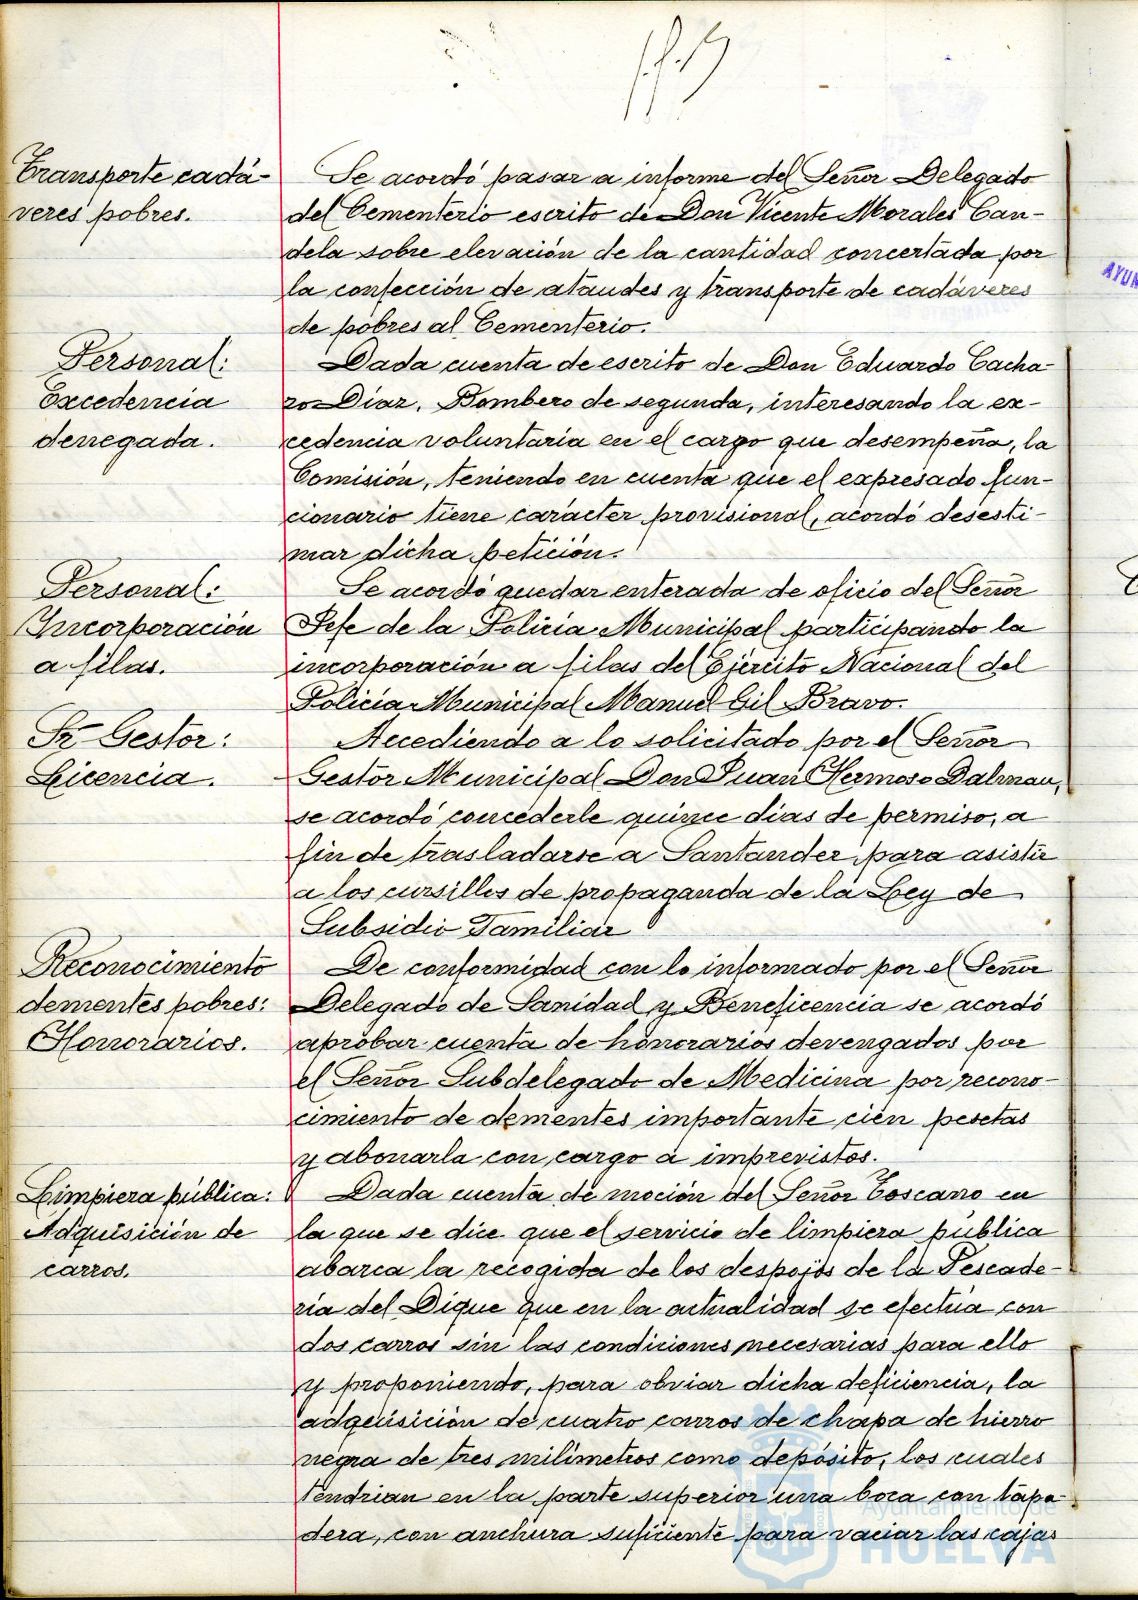 Transporte cadá-
veres pobres.
Se acordó pasar a informe del Señor Delegado
del Cementerio escrito de Don Vicente Morales Can-
dela sobre elevación de la cantidad concertada por
la confección de ataudes y transporte de cadáveres
de pobres al Cementerio.
Personal:
Excedencia
denegada.
Dada cuenta de escrito de Don Eduardo Cacha-
ro Díaz, Bombero de segunda, interesando la ex-
cedencia voluntaria en el cargo que desempeña, la
Comisión, teniendo en cuenta que el expresado fun-
cionario tiene carácter provisional, acordó desesti-
mar dicha petición.
Personal:
Incorporación
a filas.
Se acordó quedar enterada de oficio del Señor
Jefe de la Policía Municipal participando la
incorporación a filas del Ejército Nacional del
Policía Municipal Manuel Gil Bravo.
Sr Gestor:
Licencia.
Accediendo a lo solicitado por el Señor
Gestor Municipal Don Juan Hermoso Dalmau,
se acordó concederle quince dias de permiso, a
fin de trasladarse a Santander para asistir
a los cursillos de propaganda de la Ley de
Subsidio Familiar
Reconocimiento
dementes pobres:
Honorarios.
De conformidad con lo informado por el Señor
Delegado de Sanidad y Beneficencia se acordó
aprobar cuenta de honorarios devengados por
el Señor Subdelegado de Medicina por recono-
cimiento de dementes importante cien pesetas
y abonarla con cargo a imprevistos.
Limpieza pública:
Adquisición de
carros.
Dada cuenta de moción del Señor Toscano en
la que se dice que el servicio de limpieza pública
abarca la recogida de los despojos de la Pescade-
ría del Dique que en la actualidad se efectúa con
dos carros sin las condiciones necesarias para ello
y proponiendo, para obviar dicha deficiencia, la
adquisición de cuatro carros de chapa de hierro
negra de tres milimetros como depósito, los cuales
tendrian en la parte superior una boca con tapa-
dera, con anchura suficiente para vaciar las cajas
Ayuntamiento de
HUELVA